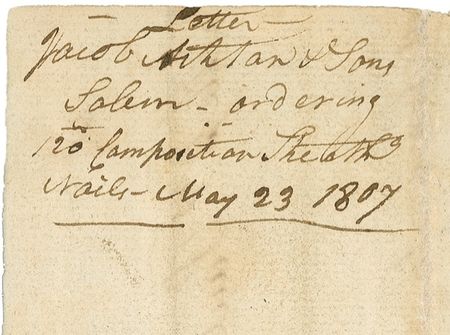 Letter
Jacob Ashton & Sons
Salem - ordering
120 Composition Sheathg
Nails - May 23 1807